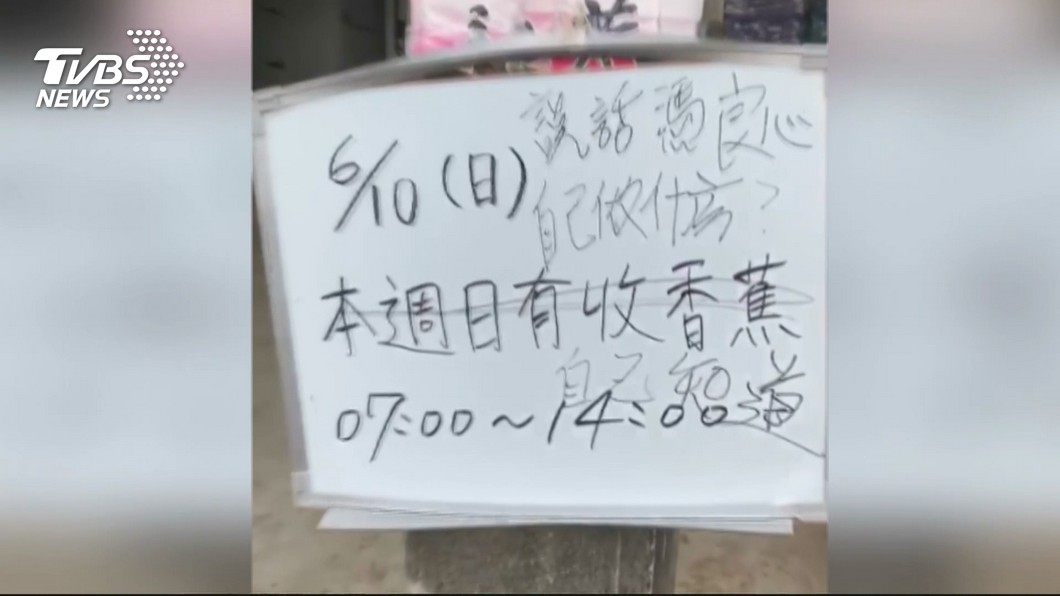 TVBS
NEWS
6/10(日)
說話憑良心
自己做什么?
本週日有收香蕉
自己知道
07:00~14:00